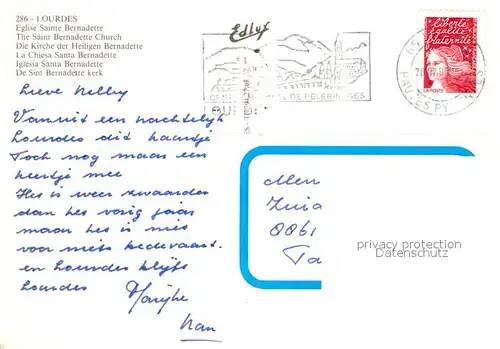 286 - LOURDES
Eglise Sainte Bernadette
The Saint Bernadette Church
Die Kirche der Heiligen Bernadette
La Chiesa Santa Bernadette
Iglesia Santa Bernadette
De Sint Bernadette kerk
Edlys
DE PÈLERINAGES
liberté
égalité
fraternité
LA POSTE
HAUTES PY
Lieve Nelly
Vanuit een nachtelijk
Lourdes dit kaartje
Toch nog maar een
keertje mee
Het is weer zwaarder
dan het vorig jaar
maar het is niet
voor niets bedevaart.
en Lourdes blijft
Lourdes
Marijke
Men
Zuia
0061
Ta
privacy protection
Datenschutz